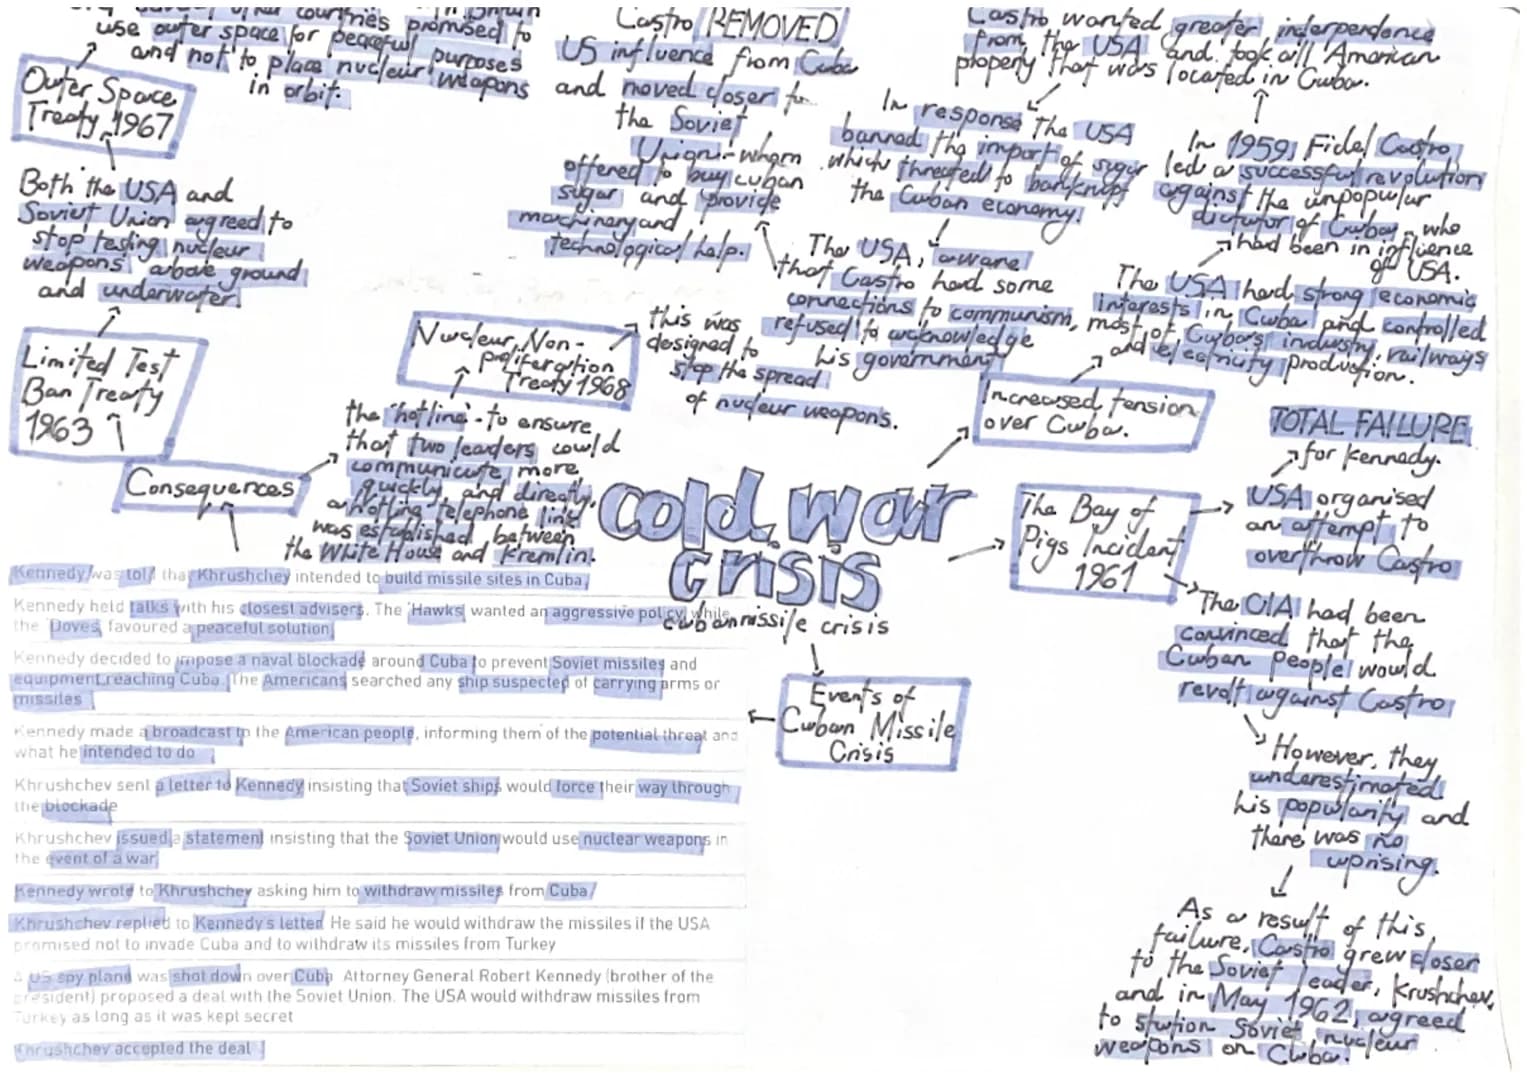 use outer space for peaceful purposes
and not to place nuclear weapons
in orbit.
Outer Space
Treaty 1967
Both the USA and
Soviet Union agreed to
stop testing nuclear
weapons above ground
and underwater.
Limited Test
Ban Treaty
1963
Consequences
Nuclear Non-
proliferation
Treaty 1968
this was
designed to
stop the spread
of nuclear weapons.
the 'hotline' - to ensure
that two leaders could
communicate more
quickly, and directly,
a 'hotline' telephone link
was established between
the White House and Kremlin.
Castro REMOVED
US influence from Cuba
and moved closer to
the Soviet
Union - whom
offered to buy cuban
sugar and provide
machinery and
technological help.
Castro wanted greater independence
from the USA and took all American
property that was located in Cuba.
In response the USA
banned the import of sugar
which threated to bankrupt
the Cuban economy.
The USA, aware
that Castro had some
connections to communism,
refused to acknowledge
his government
In 1959, Fidel Castro
led a successful revolution
against the unpopular
dictator of Cuba, who
had been in influence
of USA.
The USA had strong economic
interests in Cuba and controlled
most of Cuba's industry, railways
and electricity production.
Increased tension
over Cuba.
cold war
crisis
cuban missile crisis
The Bay of
Pigs Incident
1961
TOTAL FAILURE
for Kennedy.
USA organised
an attempt to
overthrow Castro
The CIA had been
convinced that the
Cuban people would
revolt against Castro
However, they
underestimated
his popularity and
there was no
uprising.
As a result of this
failure, Castro grew closer
to the Soviet leader, Krushchev,
and in May 1962, agreed
to station Soviet nuclear
weapons on Cuba.
Events of
Cuban Missile
Crisis
Kennedy was told that Khrushchev intended to build missile sites in Cuba.
Kennedy held talks with his closest advisers. The 'Hawks' wanted an aggressive policy while
the 'Doves' favoured a peaceful solution
Kennedy decided to impose a naval blockade around Cuba to prevent Soviet missiles and
equipment reaching Cuba. The Americans searched any ship suspected of carrying arms or
missiles
Kennedy made a broadcast to the American people, informing them of the potential threat and
what he intended to do
Khrushchev sent a letter to Kennedy insisting that Soviet ships would force their way through
the blockade
Khrushchev issued a statement insisting that the Soviet Union would use nuclear weapons in
the event of a war
Kennedy wrote to Khrushchev asking him to withdraw missiles from Cuba
Khrushchev replied to Kennedy's letter. He said he would withdraw the missiles if the USA
promised not to invade Cuba and to withdraw its missiles from Turkey
A US spy plane was shot down over Cuba. Attorney General Robert Kennedy (brother of the
president) proposed a deal with the Soviet Union. The USA would withdraw missiles from
Turkey as long as it was kept secret
Khrushchev accepted the deal